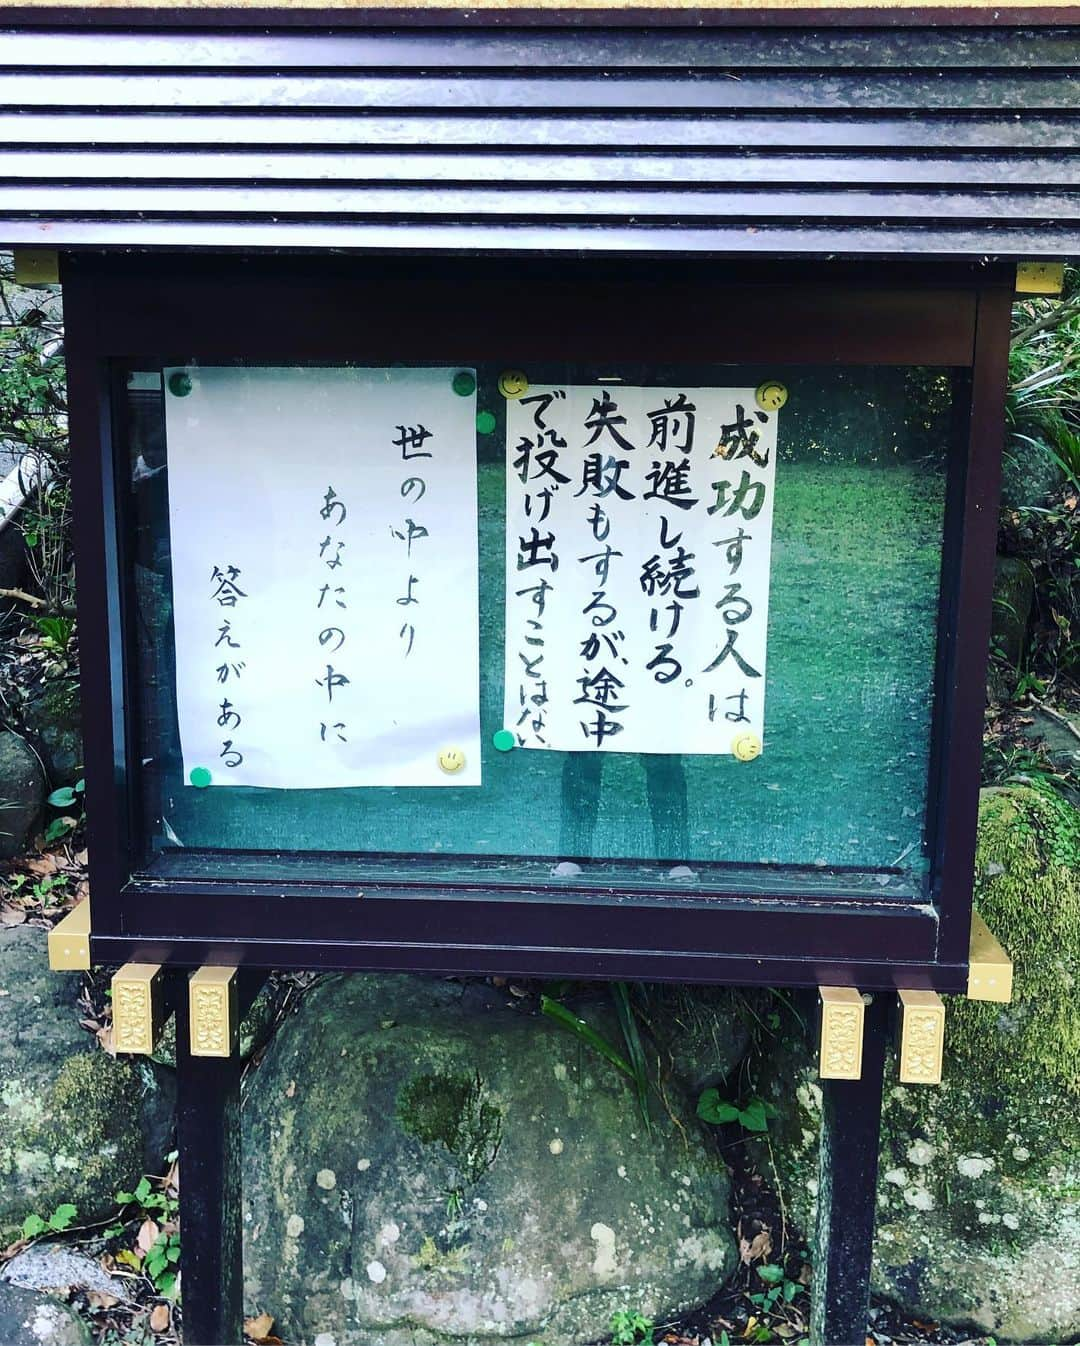 成功する人は
前進し続ける。
失敗もするが、途中
で投げ出すことはない。
世の中より
あなたの中に
答えがある